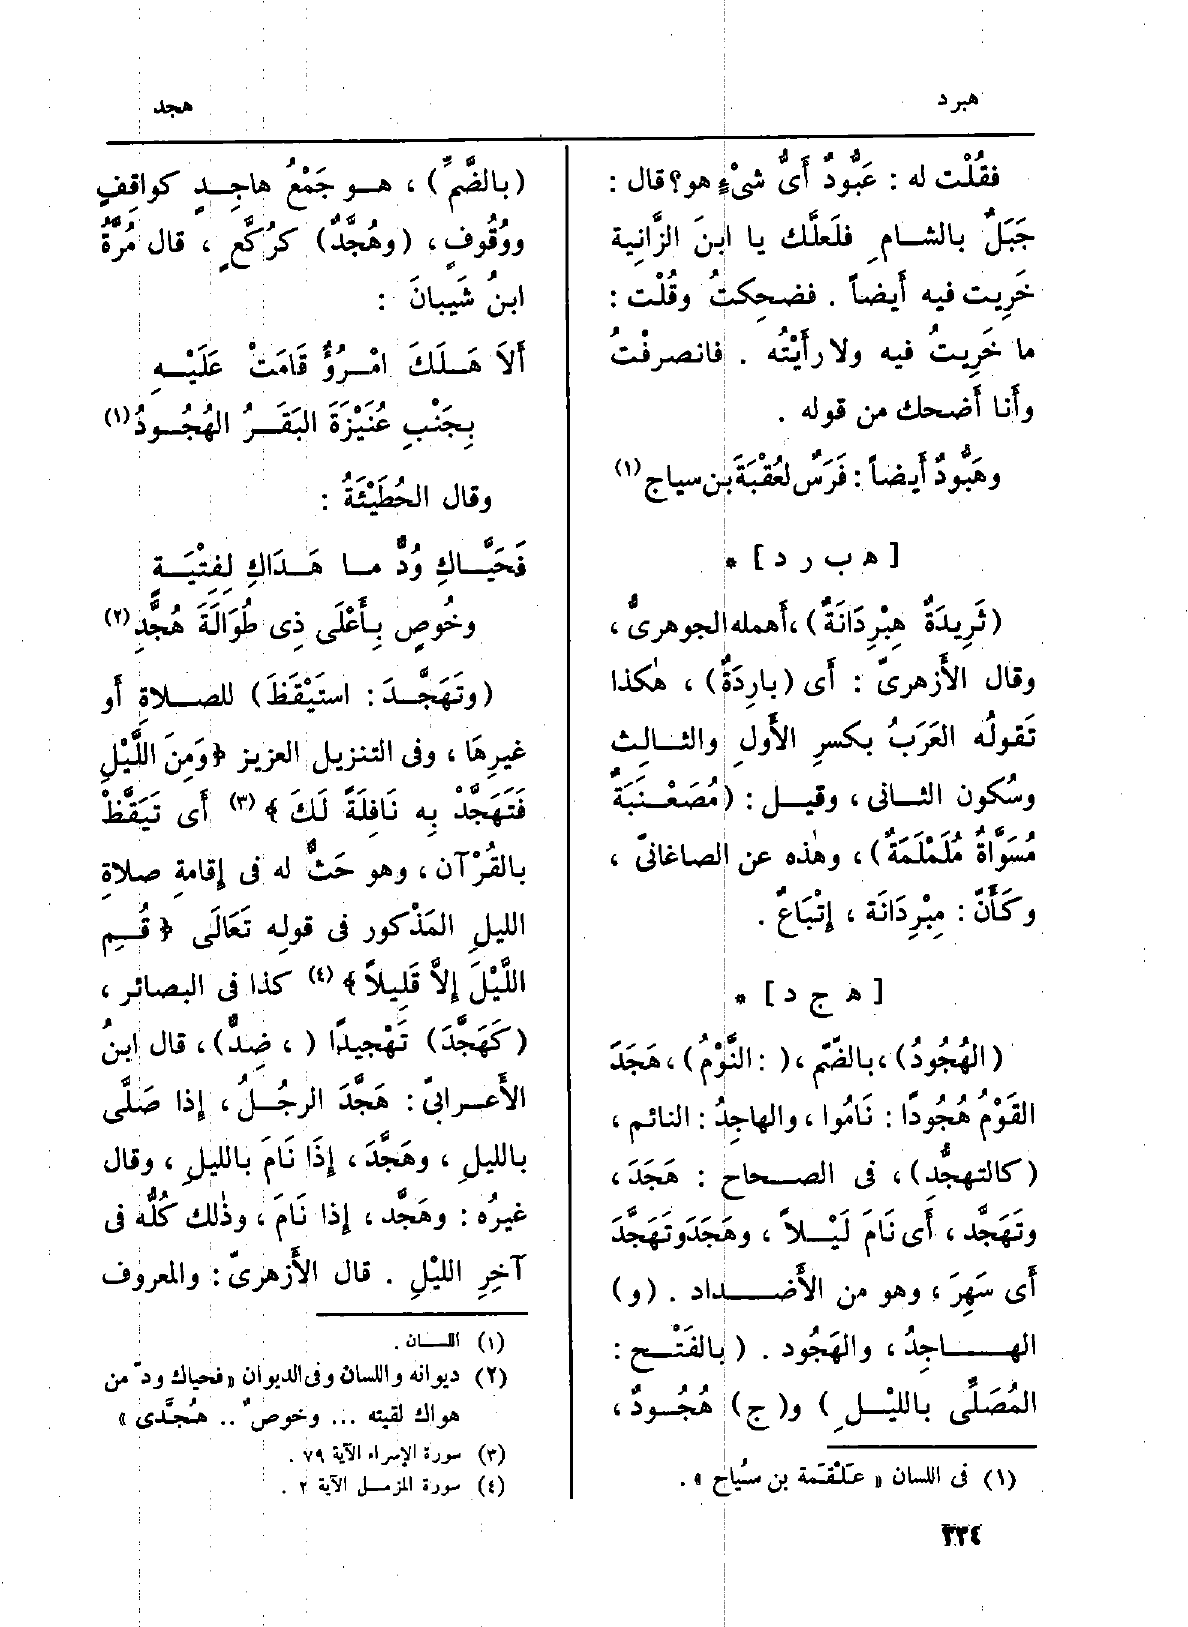 هبرد
هجد
فقُلْت له : عَبُّودٌ أَىُّ شىْءٍ هو؟ قال :
جَبَلٌ بالشــامِ فلَعلَّك يا ابنَ الزَّانِية
خَرِيت فيه أَيضاً . فضحِكتُ وقُلْت :
ما خَرِيتُ فيه ولا رأَيْتُه . فانصرفْتُ
وأَنا أَضحك من قوله .
وهَبُّودٌ أَيضاً : فَرَسٌ لعُقْبَةَ بن سياج (١)
[ ه ب ر د ] *
(ثَرِيدَةٌ هِبْرِدَانَةٌ) ، أَهمله الجوهرىُّ ،
وقال الأَزهرىّ : أَى (بارِدَةٌ) ، هٰكذا
تَقولُه العَرَبُ بكسرِ الأَولِ والثــالِثِ
وسُكون الثــانى ، وقيــل : (مُصَعْــنَبَةٌ
مُسَوَّاةٌ مُلَمْلَمَةٌ) ، وهٰذه عن الصاغانىّ ،
وكَأَنَّ : مِبْرِدَانَة ، إِتْبَاعٌ .
[ ه ج د ] *
(الهُجُودُ) ، بالضّم ، ( : النَّوْمُ) ، هَجَدَ
القَوْمُ هُجُودًا : نَامُوا ، والهاجِدُ : النائم ،
(كالتهجُّد) ، فى الصــحاح : هَجَدَ ،
وتَهَجَّد ، أَى نَامَ لَيْــلاً ، وهَجَدَ وتَهَجَّدَ
أَى سَهِرَ ، وهو من الأَضْــداد . (و)
الهــاجِدُ ، والهَجُود . (بالفَتْــح :
المُصَلِّى بالليْــلِ) و(ج) هُجُــودٌ ،
(١) فى اللسان « علْقَمة بن سُياج » .
(بالضَّمِّ) ، هــو جَمْعُ هاجِــدٍ كواقِفٍ
ووُقُوفٍ ، (وهُجَّدٌ) كرُكَّعٍ ، قال مُرَّةُ
ابنُ شَيبانَ :
أَلاَ هَــلَكَ امْــرُؤٌ قَامَتْ عَلَيْــهِ
بِجَنْبِ عُنَيْزَةَ البَقَــرُ الهُجُــودُ (١)
وقال الحُطَيْئَةُ :
فَحَيَّــاكِ وُدٌّ مــا هَــدَاكِ لِفِتْيَــةٍ
وخُوصٍ بِأَعْلَى ذِى طُوَالَةَ هُجَّدِ (٢)
(وتَهَجَّــدَ : استَيْقَظَ) للصــلاةِ أَو
غيرِهَا ، وفى التنزيل العزيز ﴿وَمِنَ اللَّيْلِ
فَتَهَجَّدْ بِه نَافِلَةً لَكَ ﴾ (٣) أَى تَيَقَّظْ
بالقُرْآن ، وهو حَثٌّ له فى إِقامةِ صلاةِ
الليلِ المَذْكور فى قولِه تَعَالَى ﴿ قُــمِ
اللَّيْلَ إِلاَّ قَلِيلاً﴾ (٤) كذا فى البصائر ،
(كَهَجَّدَ) تَهْجِيدًا ( ، ضِدٌّ) ، قال ابنُ
الأَعــرابىّ : هَجَّدَ الرجُــلُ ، إِذا صَلَّى
بالليلِ ، وهَجَّدَ ، إِذَا نَامَ بالليلِ ، وقال
غيرُه : وهَجَّد ، إِذا نَامَ ، وذٰلك كُلُّه فى
آخِرِ الليْلِ . قال الأَزهرىّ : والمعروف
(١) اللســان .
(٢) ديوانه واللسان وفى الديوان « فحياك ودّ من
هواك لقيته ... وخوصٌ .. هُجَّدى »
(٣) سورة الإسراء الآية ٧٩ .
(٤) سورة المزمــل الآية ٢ .
٣٣٤